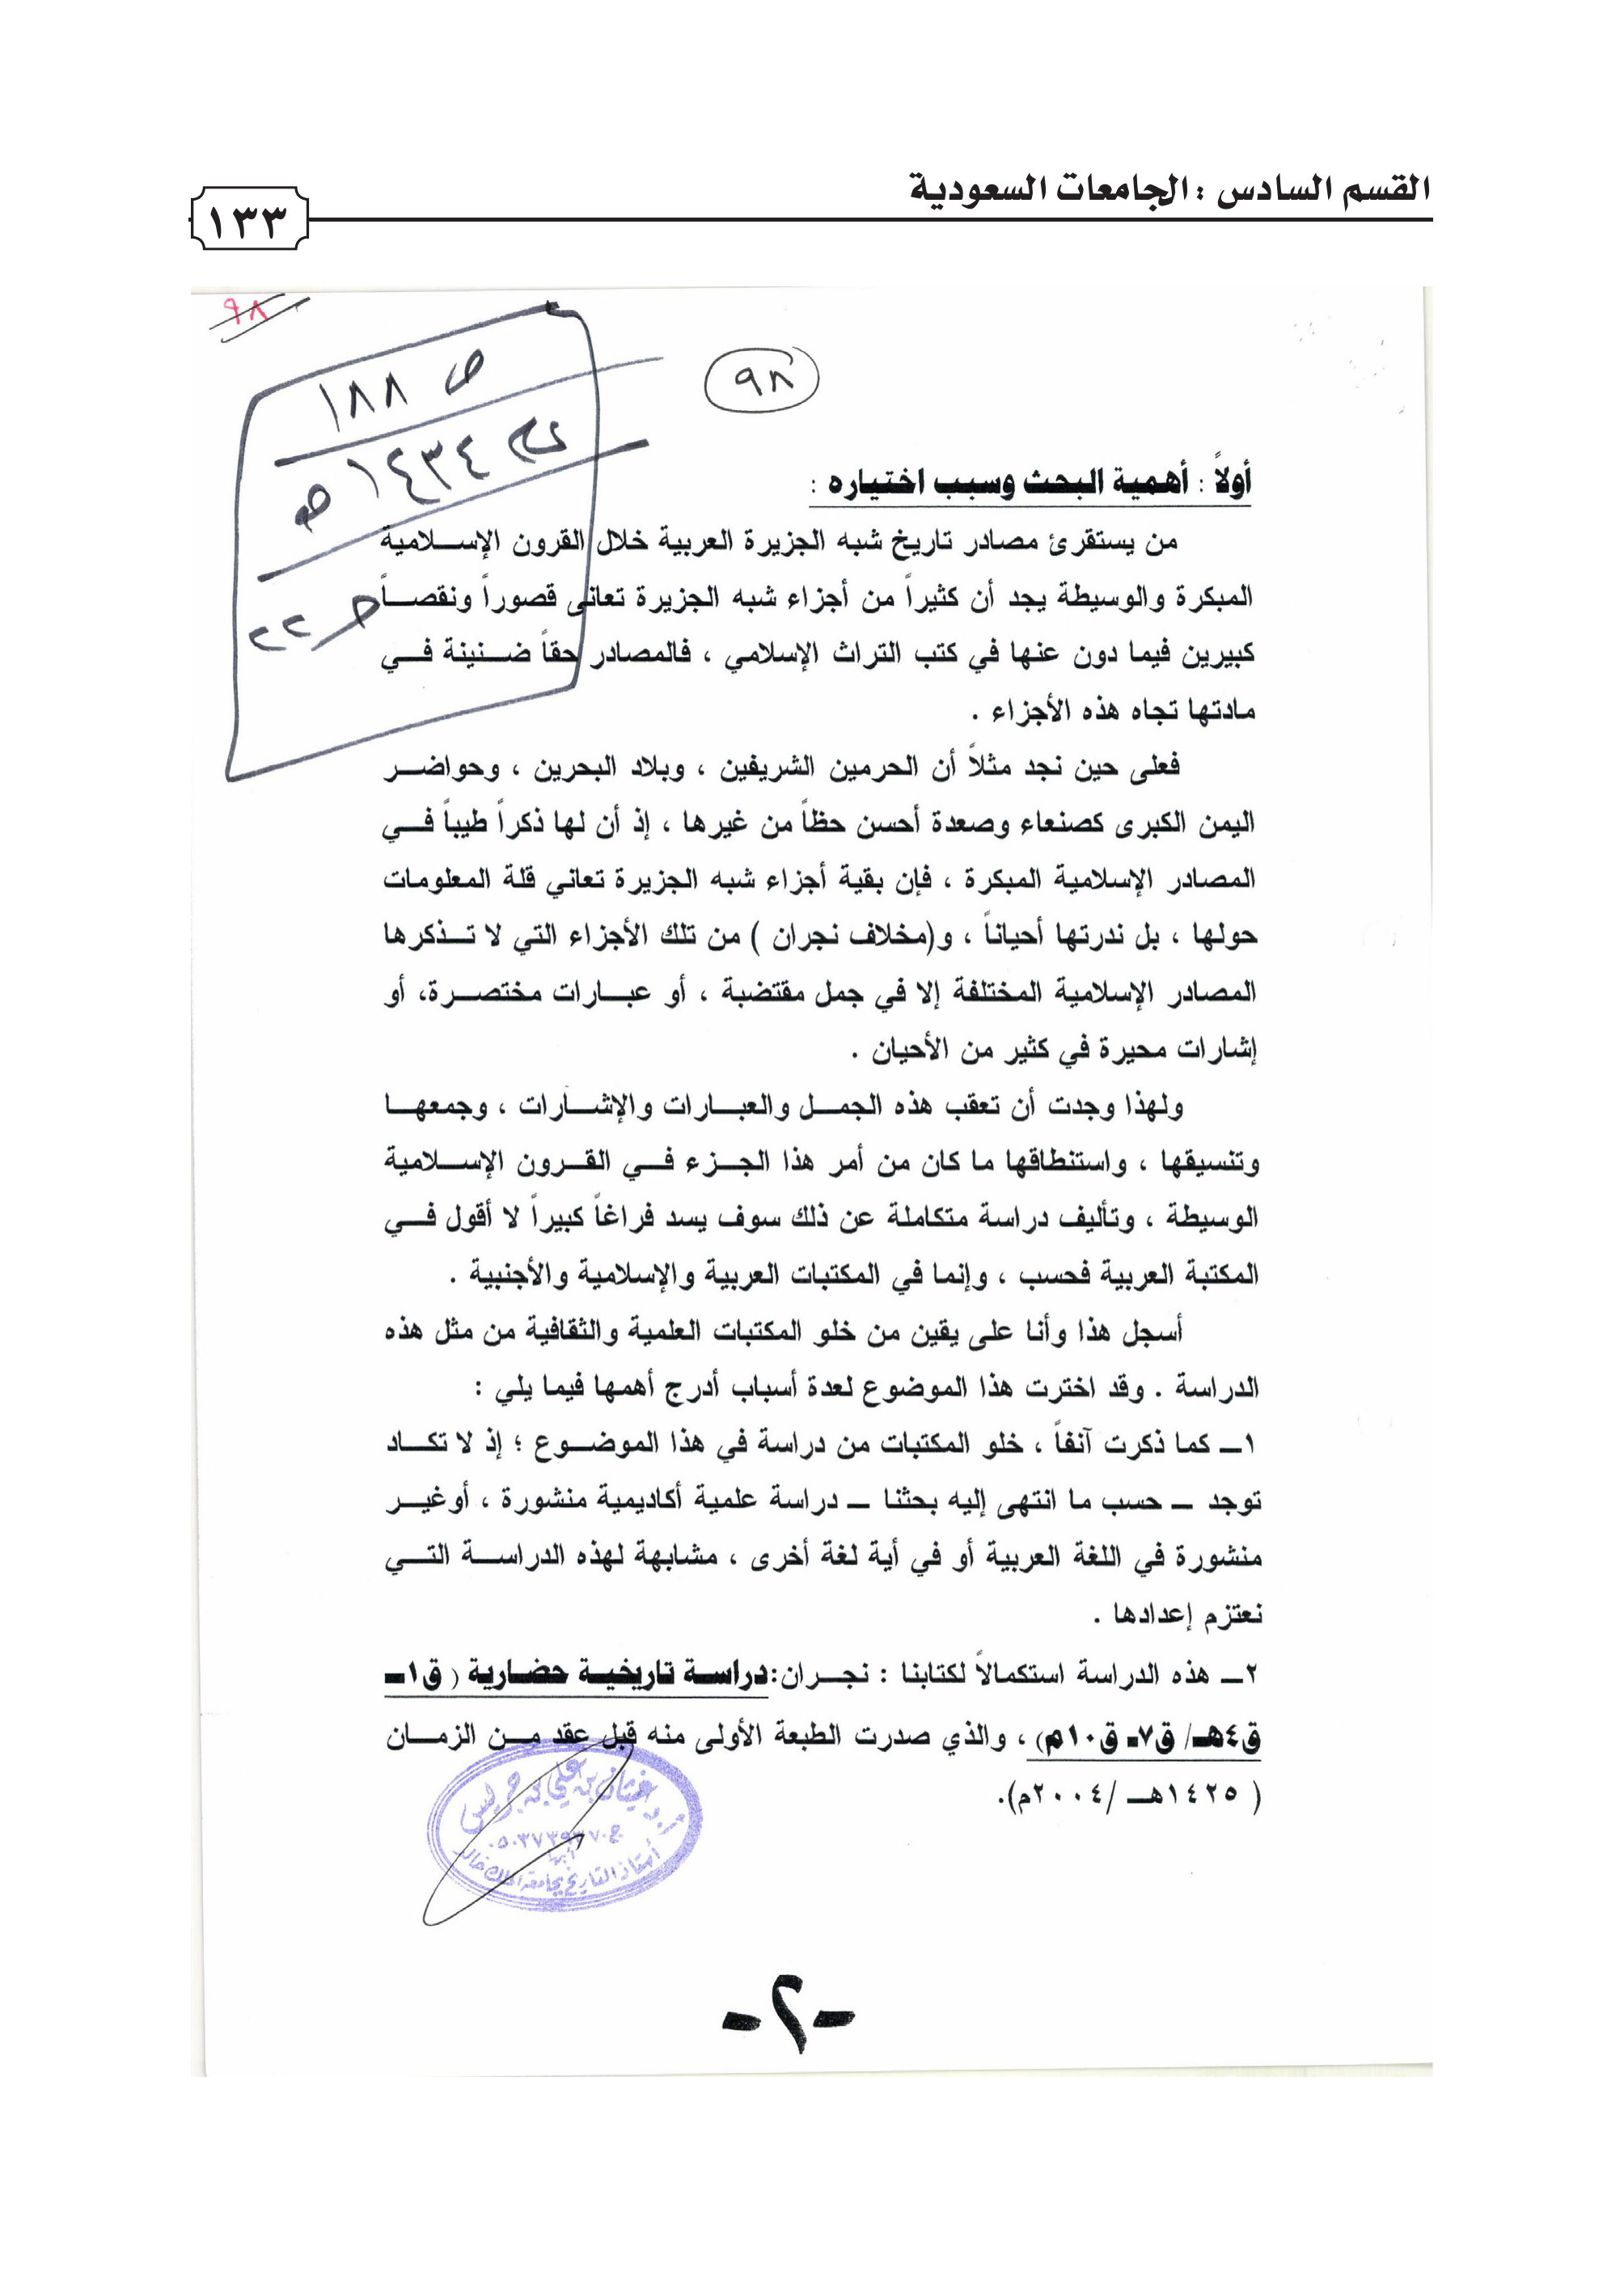 القسم السادس : الجامعات السعودية
١٣٣
٩٨
٩٨
ص ١٨٨
١٤٣٤ هـ
٢٢
أولاً : أهمية البحث وسبب اختياره :
من يستقرئ مصادر تاريخ شبه الجزيرة العربية خلال القرون الإسلامية
المبكرة والوسيطة يجد أن كثيراً من أجزاء شبه الجزيرة تعانى قصوراً ونقصاً
كبيرين فيما دون عنها في كتب التراث الإسلامي ، فالمصادر حقاً ضنينة في
مادتها تجاه هذه الأجزاء .
فعلى حين نجد مثلاً أن الحرمين الشريفين ، وبلاد البحرين ، وحواضر
اليمن الكبرى كصنعاء وصعدة أحسن حظاً من غيرها ، إذ أن لها ذكراً طيباً في
المصادر الإسلامية المبكرة ، فإن بقية أجزاء شبه الجزيرة تعاني قلة المعلومات
حولها ، بل ندرتها أحياناً ، و(مخلاف نجران ) من تلك الأجزاء التي لا تذكرها
المصادر الإسلامية المختلفة إلا في جمل مقتضبة ، أو عبارات مختصرة، أو
إشارات محيرة في كثير من الأحيان .
ولهذا وجدت أن تعقب هذه الجمل والعبارات والإشارات ، وجمعها
وتنسيقها ، واستنطاقها ما كان من أمر هذا الجزء في القرون الإسلامية
الوسيطة ، وتأليف دراسة متكاملة عن ذلك سوف يسد فراغاً كبيراً لا أقول في
المكتبة العربية فحسب ، وإنما في المكتبات العربية والإسلامية والأجنبية .
أسجل هذا وأنا على يقين من خلو المكتبات العلمية والثقافية من مثل هذه
الدراسة . وقد اخترت هذا الموضوع لعدة أسباب أدرج أهمها فيما يلي :
١ــ كما ذكرت آنفاً ، خلو المكتبات من دراسة في هذا الموضوع ؛ إذ لا تكاد
توجد ــ حسب ما انتهى إليه بحثنا ــ دراسة علمية أكاديمية منشورة ، أوغير
منشورة في اللغة العربية أو في أية لغة أخرى ، مشابهة لهذه الدراسة التي
نعتزم إعدادها .
٢ــ هذه الدراسة استكمالاً لكتابنا : نجران:دراسة تاريخية حضارية ( ق١ـ
ق٤هـ/ ق٧ـ ق١٠م) ، والذي صدرت الطبعة الأولى منه قبل عقد من الزمان
( ١٤٢٥هــ /٢٠٠٤م).
أ . د غيثان بن علي بن جريس
أبها
أستاذ التاريخ بجامعة الملك خالد
-٢-